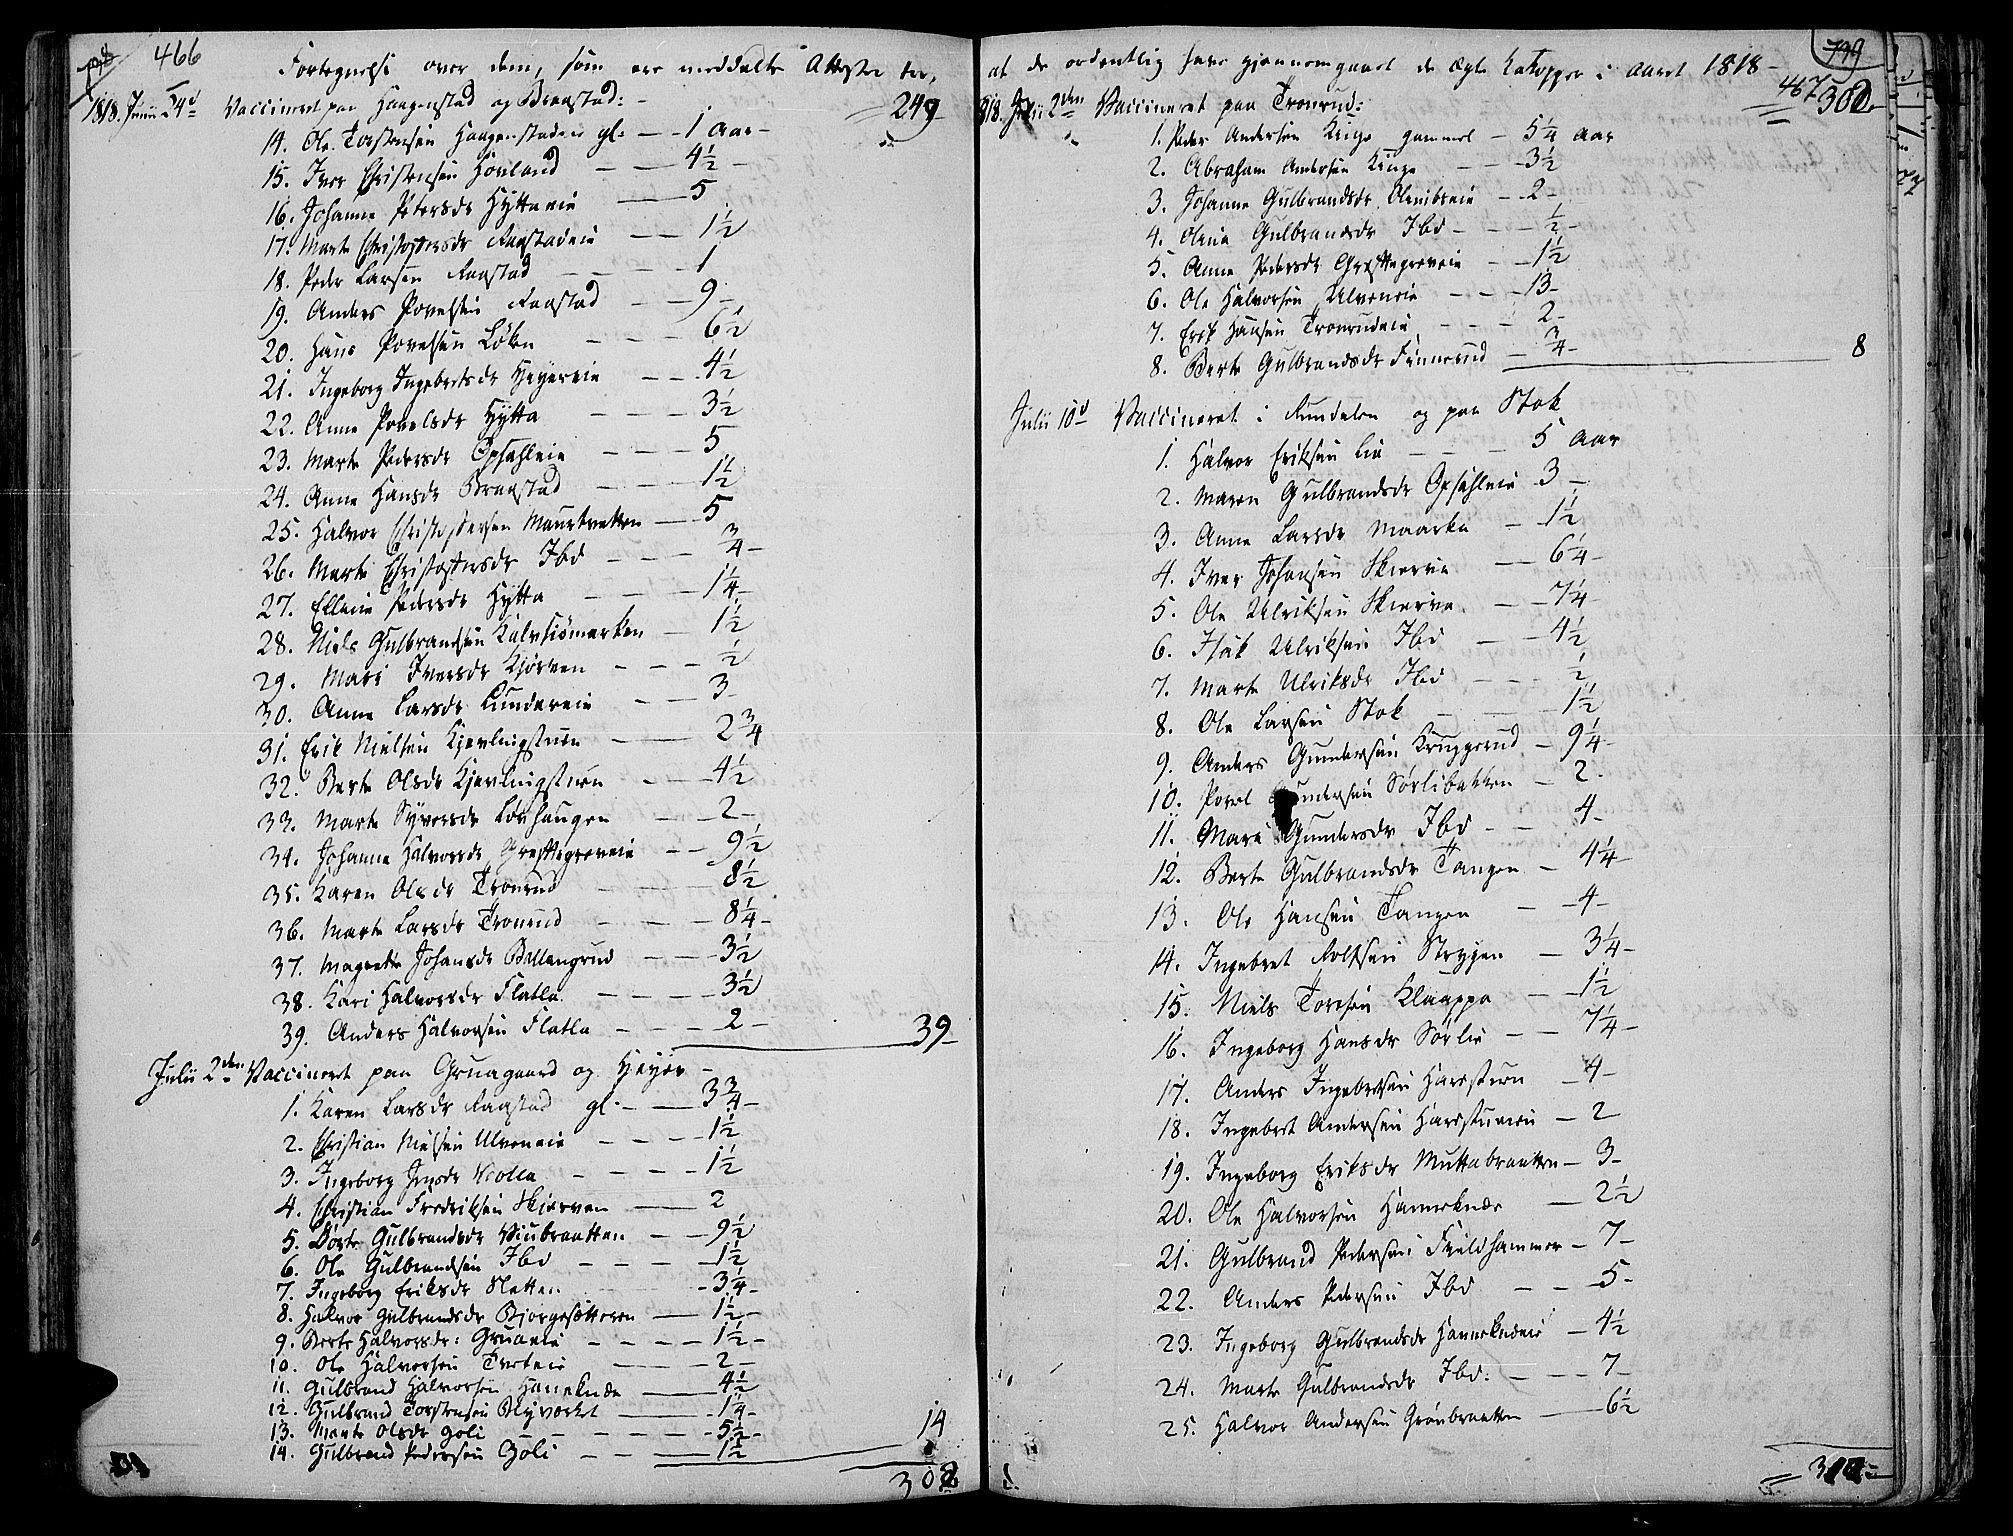 466
Fortegnelse over dem, som ere meddelte Attester for,
1818. Junii 24d Vaccineret paa Haagenstad og Braastad: 249
14. Ole Torstensen Haagenstadeie gl: 1 Aar
15. Iver Christensen Hovland 4½
16. Johanne Petersdr Hytteeie 5
17. Marte Christophersdr Raastadeie 1½
18. Peder Larsen Raastad 1
19. Anders Povelsen Raastad 9
20. Hans Povelsen Løken 6½
21. Ingeborg Ingebretsdr Heyereie 4½
22. Anne Povelsdr Hytta 3½
23. Marte Pedersdr Opsahleie 5
24. Anne Hansdr Braastad 1½
25. Halvor Christophersen 5
26. Marte Christophersdr Ibd ¾
27. Ellene Pedersdr Hytta 1¼
28. Niels Gulbrandsen Kalvsiømarken 1½
29. Mari Iversdr Kjørven ½
30. Anne Larsdr Lundereie 3
31. Erik Nielsen Kjerlingstuen 2¾
32. Berte Olsdr Kjerlingstuen 4½
33. Marte Syversdr Løvhaugen 2
34. Johanne Halvorsdr Græsttegreveie 9½
35. Karen Olsdr Tronrud 8½
36. Marte Larsdr Tronrud 8¼
37. Magrethe Johansdr Ballangrud 3½
38. Kari Halvorsdr Flatla 3½
39. Anders Halvorsen Flatla 2
39
Julii 2den Vaccineret paa Gruagaard og Heyer
1. Karen Larsdr Raastad gl. 3¾
2. Christian Nielsen Ulveneie 1½
3. Ingeborg Jensdr Molla 1½
4. Christian Fredriksen Skjerven 2
5. Dorte Gulbrandsdr Viubraatten 9½
6. Ole Gulbrandsen Ibd 1½
7. Ingeborg Eriksdr Sletten 3¼
8. Halvor Gulbrandsdr Bjørgesetteren 1½
9. Berte Halvorsdr: Grua eie 1½
10. Ole Halvorsen Tveteie 2
11. Gulbrand Halvorsen Haneknæ 4½
12. Gulbrand Torstensen Blyverket 1¼
13. Marte Olsdr Goli 5½
14. Gulbrand Pedersen Goli 1½
14
302
at de ordentlig have gjennemgaaet de ægte Kakopper i Aaret 1818
799
467
302
1818. Julii 2den Vaccineret paa Tronrud:
1. Peder Andersen Kinge gammel 5¼ Aar
2. Abraham Andersen Kinge 3½
3. Johanne Gulbrandsdr 2
4. Olea Gulbrandsdr Ibd ½
5. Anne Pedersdr Græsttegreveie 1½
6. Ole Halvorsen Ulveneie 13
7. Erik Hansen Tronrudeie 2
8. Berte Gulbrandsdr Finnerud ¾
8
Julii 10d Vaccineret i Rundelen og paa Stok
1. Halvor Eriksen Lie 5 Aar
2. Maren Gulbrandsdr Opsahleie 3
3. Anne Larsdr Maarka 1½
4. Iver Johansen Skierva 6¼
5. Ole Ulriksen Skierva 7¼
6. Isak Ulriksen Ibd 4½
7. Marte Ulriksdr Ibd ½
8. Ole Larsen Stok 1½
9. Anders Gundersen Kruggerud 9¼
10. Povel Gundersen Sørlibakken 2
11. Mari Gundersdr Ibd 4
12. Berte Gulbrandsdr Tangen 4¼
13. Ole Hansen Tangen 4
14. Ingebret Rolfsen Strygen 3¼
15. Niels Toresen Klaappa 1½
16. Ingeborg Hansdr Sørlie 7¼
17. Anders Ingebretsen Harestuen 4
18. Ingebret Andersen Harestueeie 2
19. Ingeborg Eriksdr Muttabraatten 3
20. Ole Halvorsen Hanneknæe 2½
21. Gulbrand Pedersen Fieldhammer 7
22. Anders Pedersen Ibd 5
23. Ingeborg Gulbrandsdr Hanneknæeie 4½
24. Marte Gulbrandsdr Ibd. 7
25. Halvor Andersen Grønbraatten 6½